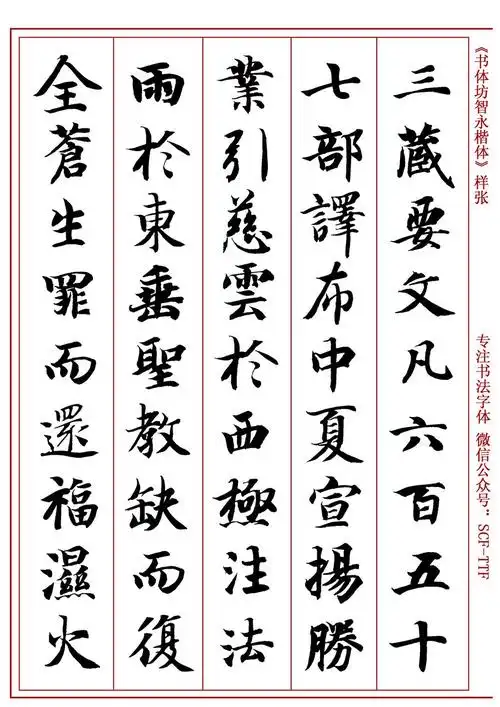 三藏要文凡六百五十
七部譯布中夏宣揚勝
業引慈雲於西極注法
雨於東垂聖教缺而復
全蒼生罪而還福濕火
《书体坊智永楷体》样张
专注书法字体 微信公众号：SCF-TTF